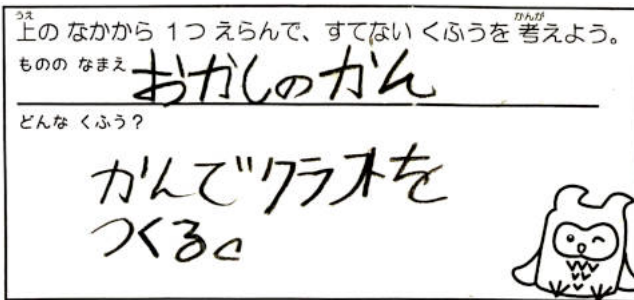 上の なかから 1つ えらんで、すてない くふうを 考えよう。
ものの なまえ おかしのかん
どんな くふう？
かんでクラオを
つくる。